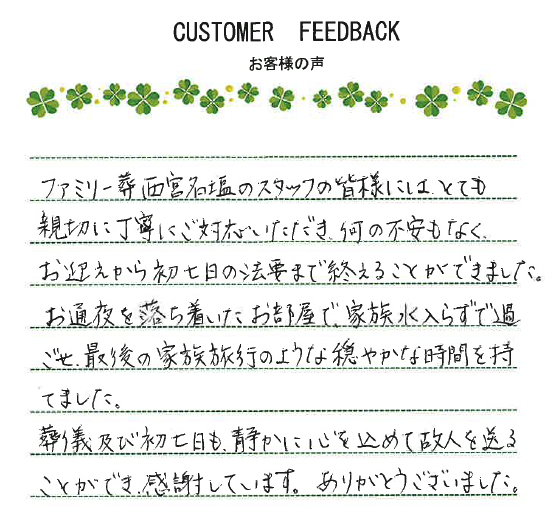 CUSTOMER FEEDBACK
お客様の声
ファミリー葬西宮名塩のスタッフの皆様には、とても
親切に丁寧にご対応いただき、何の不安もなく、
お迎えから初七日の法要まで終えることができました。
お通夜を落ち着いたお部屋で、家族水入らずで過
ごせ、最後の家族旅行のような穏やかな時間を持
てました。
葬儀及び初七日も、静かに心を込めて故人を送る
ことができ、感謝しています。ありがとうございました。